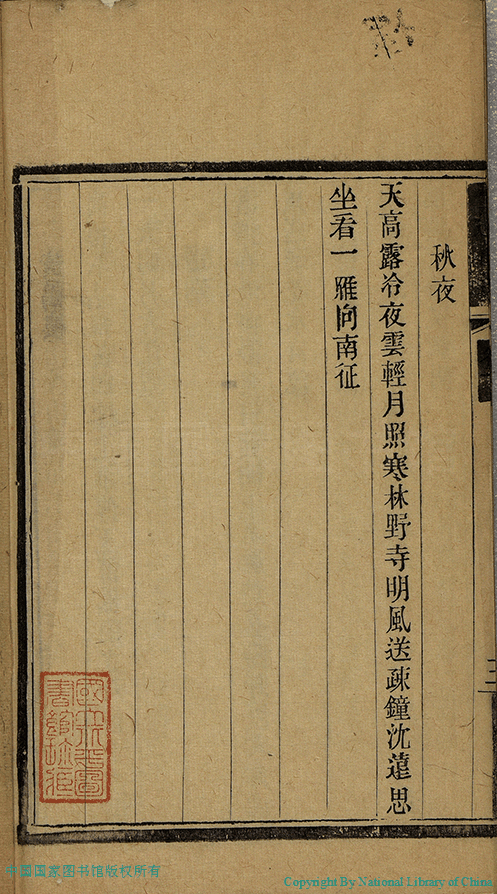 秋夜
天高露冷夜雲輕月照寒林野寺明風送疎鐘沈遠思
坐看一雁向南征
國立北平圖
書館珍藏
中國国家图书馆版权所有
Copyright By National Library of China